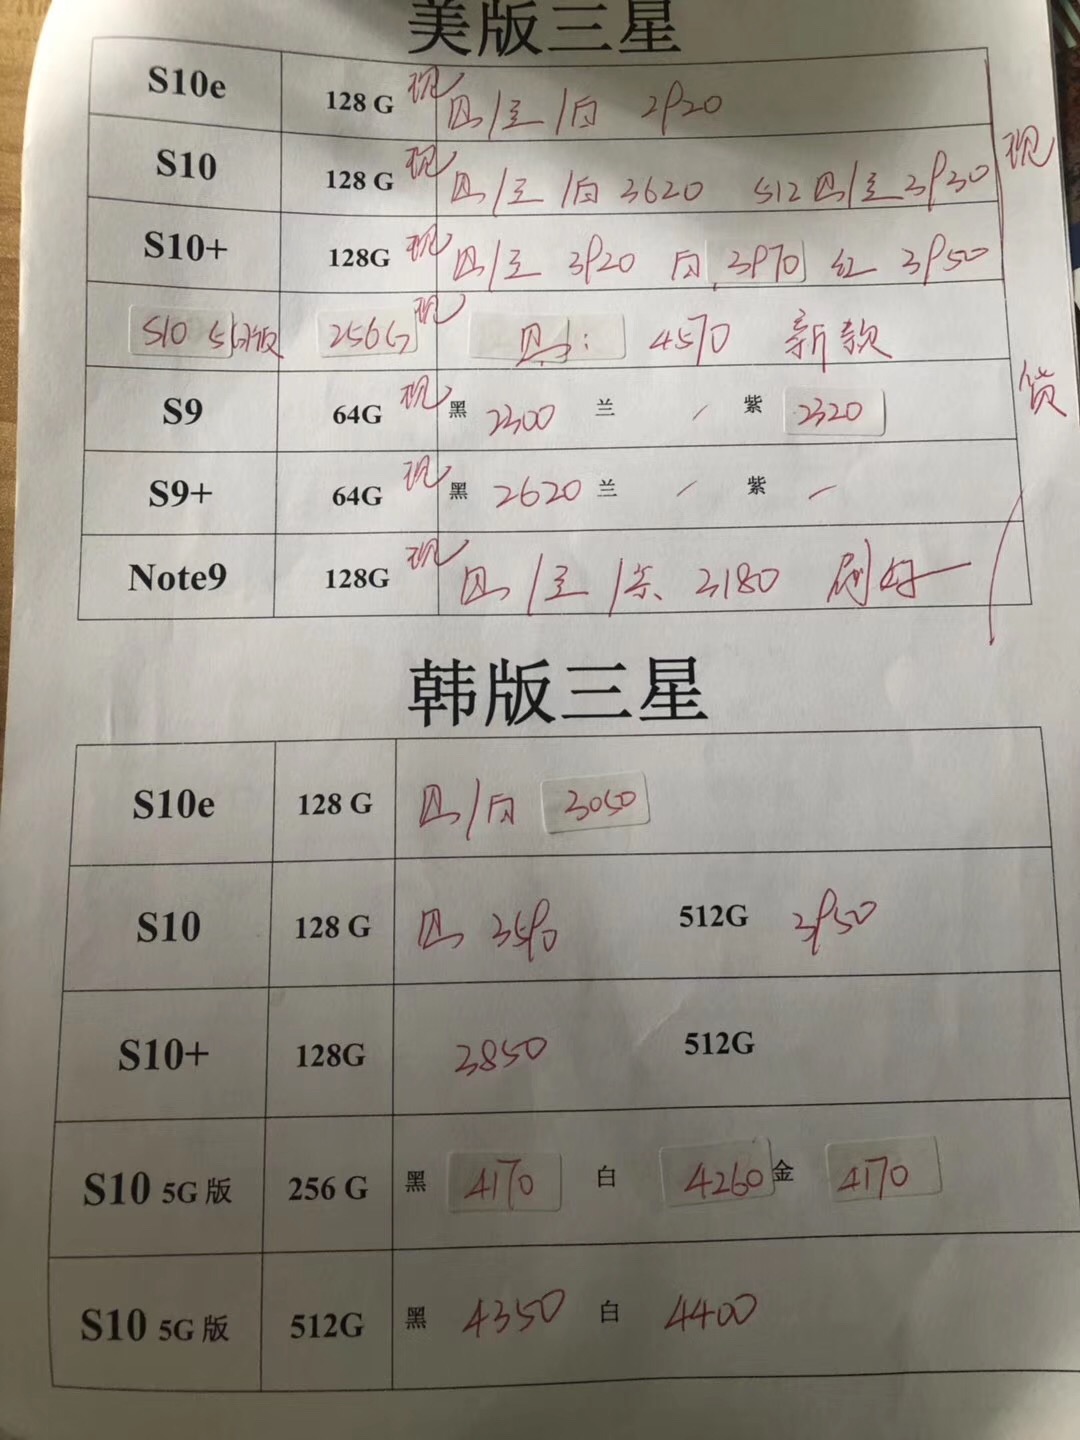 美版三星
S10e 128 G 现 黑/兰/白 2920
S10 128 G 现 黑/兰/白 3620 512 黑/兰 3930 现
S10+ 128G 现 黑/兰 3920 白 3970 红 3950
S10 5G版 256G 现 黑: 4570 新款
S9 64G 现 黑 2300 兰 / 紫 2320 货
S9+ 64G 现 黑 2620 兰 / 紫 /
Note9 128G 现 黑/兰/紫 3180 刷好
韩版三星
S10e 128 G 黑/白 3050
S10 128 G 黑 3590 512G 3950
S10+ 128G 3850 512G
S10 5G 版 256 G 黑 4170 白 4260 金 4170
S10 5G 版 512G 黑 4350 白 4400